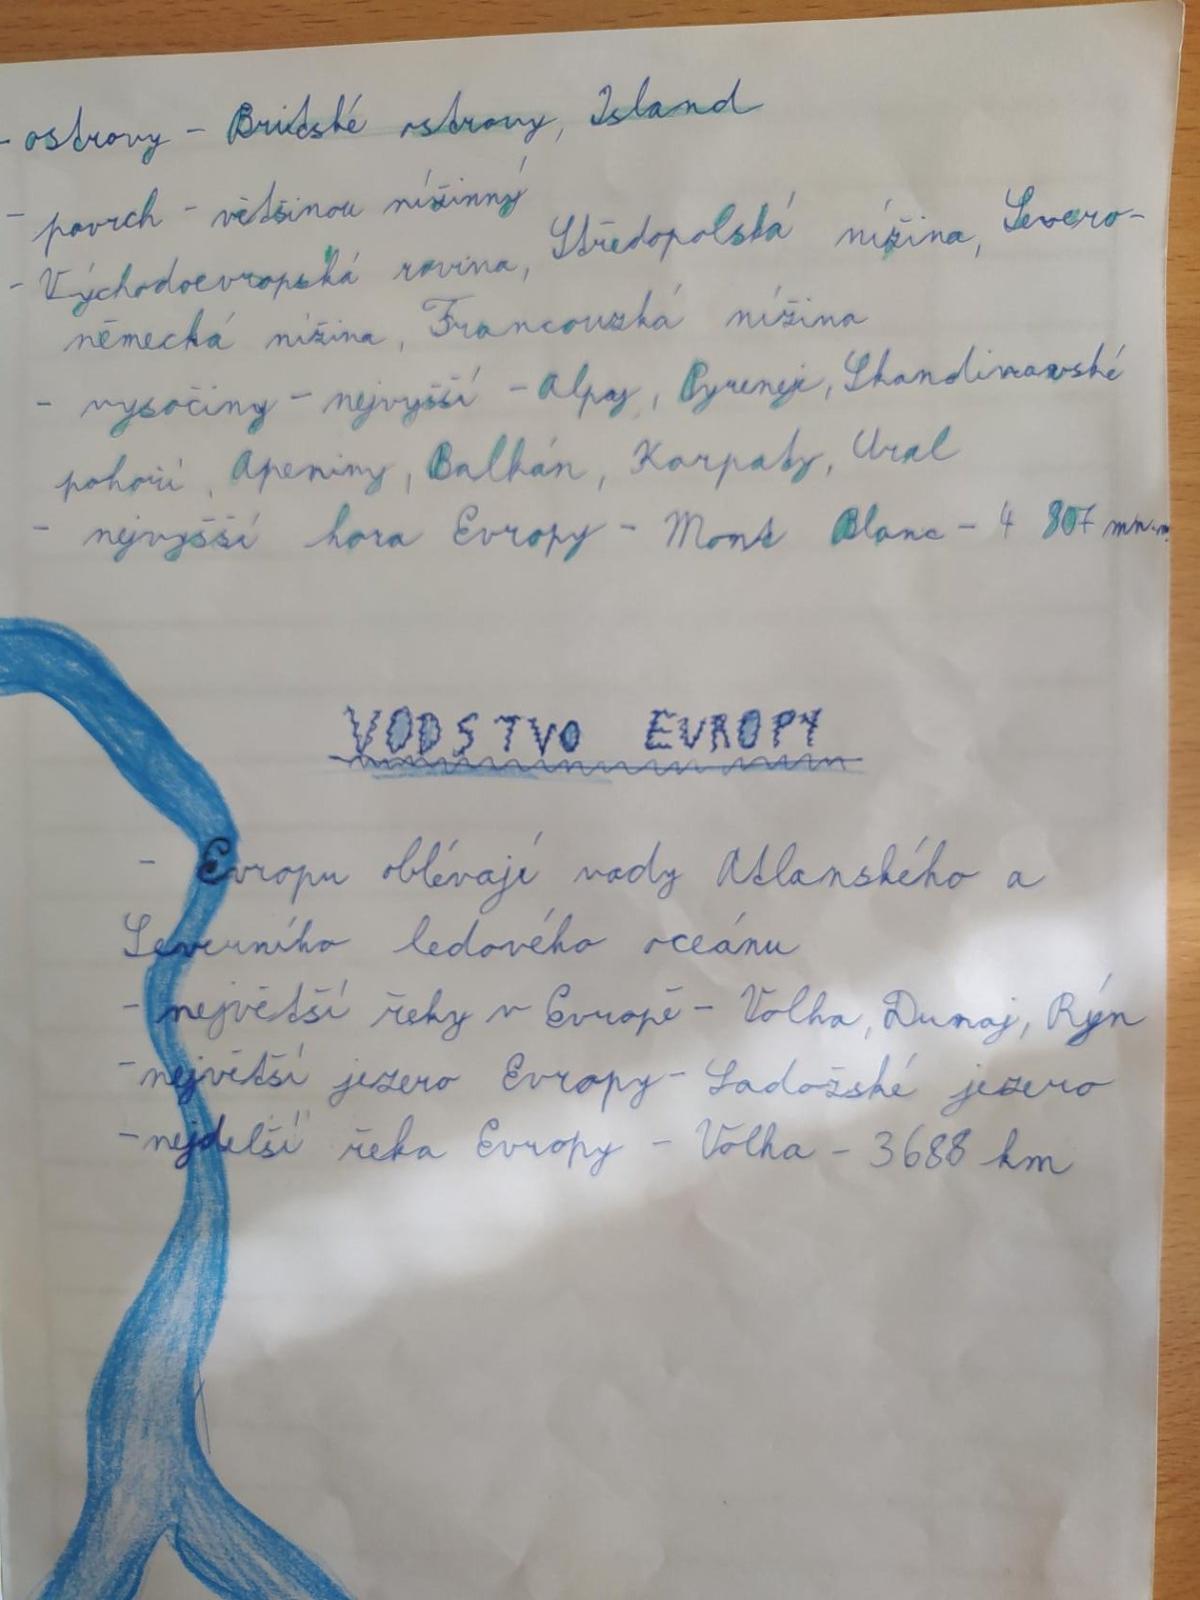 - ostrovy - Britské ostrovy, Island
- povrch - většinou nížinný
- Východoevropská rovina, Středopolská nížina, Severo-
německá nížina, Francouzská nížina
- vysočiny - nejvyšší - Alpy, Pyreneje, Skandinavské
pohoří, Apeniny, Balkán, Karpaty, Ural
- nejvyšší hora Evropy - Mont Blanc - 4 807 m n. m.
VODSTVO EVROPY
- Evropu oblévají vody Atlanského a
Severního ledového oceánu
- největší řeky v Evropě - Volha, Dunaj, Rýn
- největší jezero Evropy - Ladožské jezero
- nejdelší řeka Evropy - Volha - 3688 km